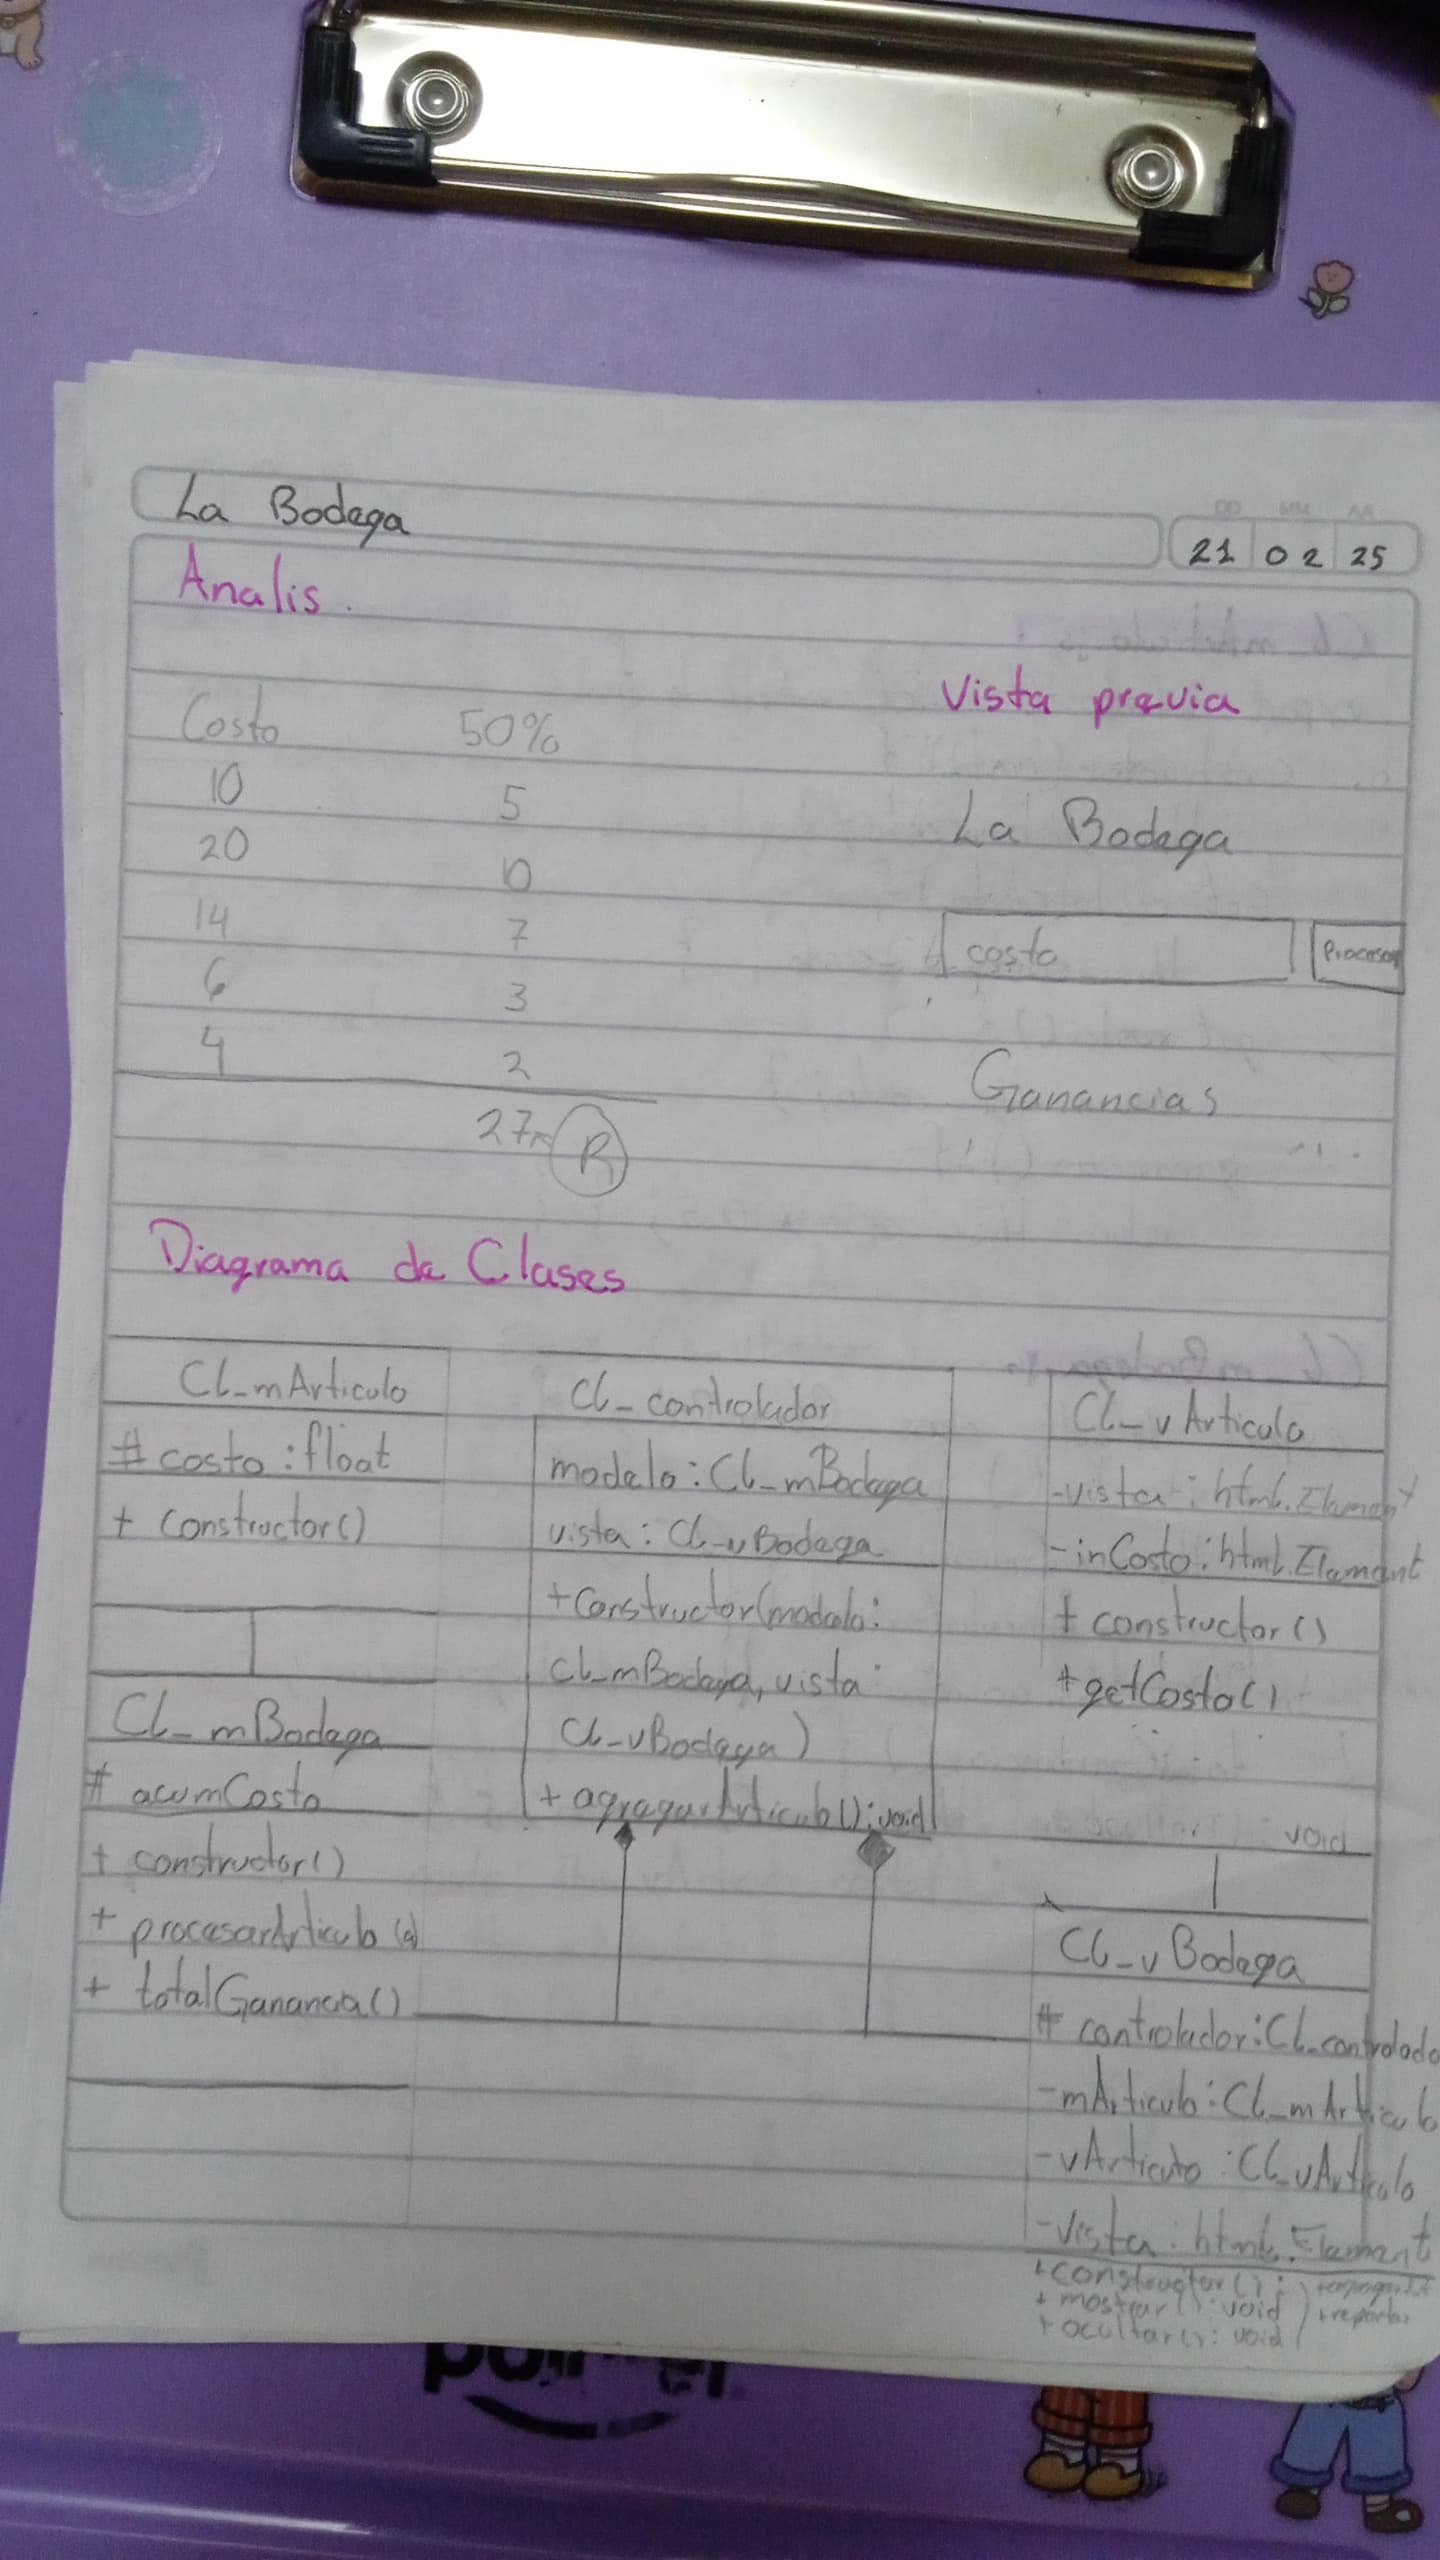 La Bodega
DD MM AA
21 02 25
Analis.
Vista previa
Costo 50%
10 5
20 10
14 7
6 3
4 2
27 R
La Bodega
costo Procesar
Ganancias
Diagrama de Clases
Cl_mArticulo
# costo : float
+ constructor()
Cl_mBodega
# acumCosto
+ constructor()
+ procesarArticulo (a)
+ totalGanancia()
Cl_controlador
modelo : Cl_mBodega
vista : Cl_vBodega
+ Constructor(modelo:
Cl_mBodega, vista:
Cl_vBodega)
+ agregarArticulo() : void
Cl_vArticulo
- vista : html.Element
- inCosto : html.Element
+ constructor()
+ getCosto()
void
Cl_vBodega
# controlador : Cl_controlado
- mArticulo : Cl_mArticulo
- vArticulo : Cl_vArticulo
- vista : html.Element
+ constructor() ;
+ mostrar() : void
+ reportar
+ ocultar() : void